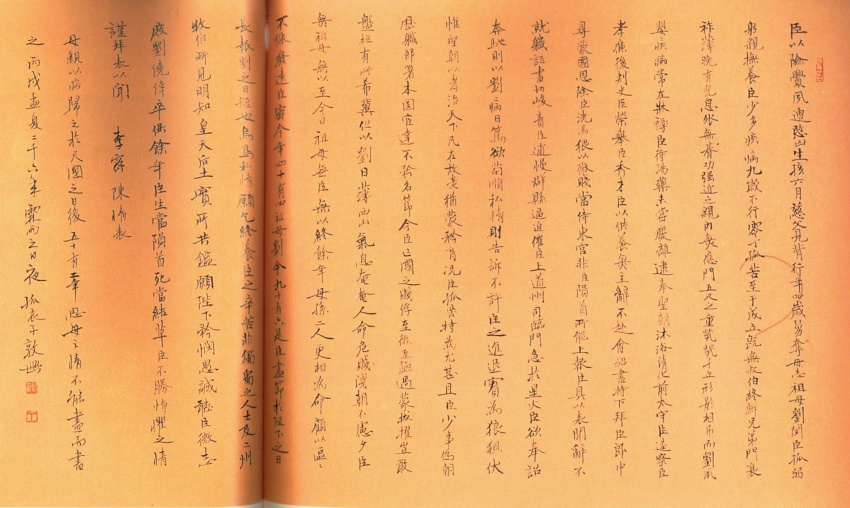 臣以險釁夙遭愍凶生孩六月慈父見背行年四歲舅奪母志祖母劉閔臣孤弱
躬親撫養臣少多疾病九歲不行零丁孤苦至于成立既無叔伯終鮮兄弟門衰
祚薄晚有兒息外無朞功強近之親內無應門五尺之童煢煢孑立形影相弔而劉夙
嬰疾病常在牀蓐臣侍湯藥未嘗廢離逮奉聖朝沐浴清化前太守臣逵察臣
孝廉後刺史臣榮舉臣秀才臣以供養無主辭不赴會詔書特下拜臣郎中
尋蒙國恩除臣洗馬猥以微賤當侍東宮非臣隕首所能上報臣具以表聞辭不
就職詔書切峻責臣逋慢郡縣逼迫催臣上道州司臨門急於星火臣欲奉詔
奔馳則以劉病日篤欲苟順私情則告訴不許臣之進退實為狼狽伏
惟聖朝以孝治天下凡在故老猶蒙矜育況臣孤苦特為尤甚且臣少事偽朝
歷職郎署本圖宦達不矜名節今臣亡國之賤俘至微至陋過蒙拔擢豈敢
盤桓有所希冀但以劉日薄西山氣息奄奄人命危淺朝不慮夕臣
無祖母無以至今日祖母無臣無以終餘年母孫二人更相為命以區〻
不能廢遠臣密今年四十有四祖母劉今九十有六是臣盡節於陛下之日
長報劉之日短也烏鳥私情願乞終養臣之辛苦非獨蜀之人士及二州
牧伯所見明知皇天后土實所共鑑願陛下矜憫愚誠聽臣微志
庶劉僥倖卒保餘年臣生當隕首死當結草臣不勝怖懼之情
謹拜表以聞 李密 陳情表
母親以病歸之於天國之日後五十有 年 母之情不能盡而書
之 丙戌孟夏二千六年 之日夜 孤哀子敦興